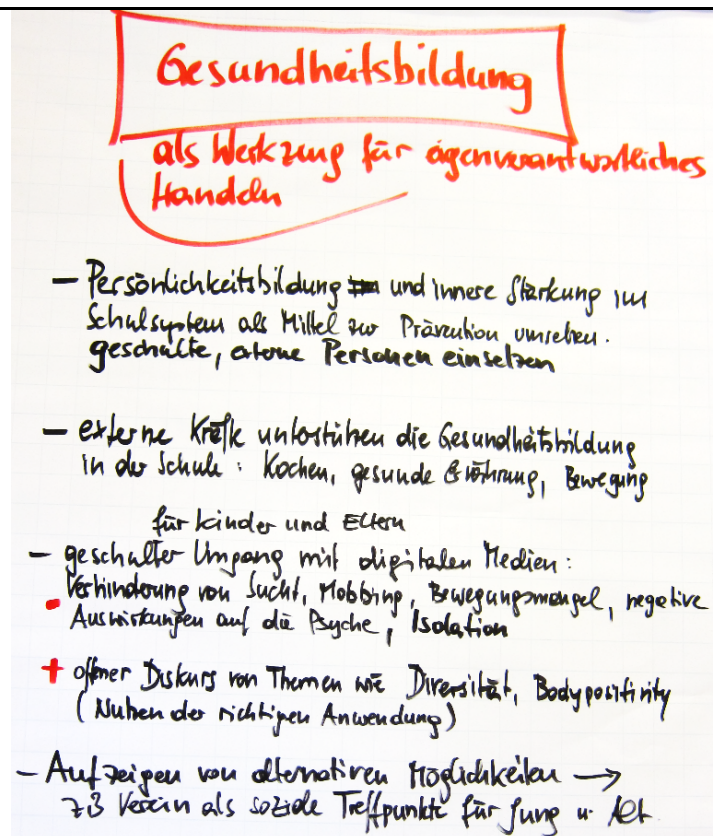 Gesundheitsbildung
als Werkzeug für eigenverantwortliches
Handeln
- Persönlichkeitsbildung und innere Stärkung im
Schulsystem als Mittel zur Prävention umsetzen.
geschulte, externe Personen einsetzen
- externe Kräfte unterstützen die Gesundheitsbildung
in der Schule: Kochen, gesunde Ernährung, Bewegung
für Kinder und Eltern
- geschulter Umgang mit digitalen Medien:
Verhinderung von Sucht, Mobbing, Bewegungsmangel, negative
- Auswirkungen auf die Psyche, Isolation
+ offener Diskurs von Themen wie Diversität, Bodypositivity
(Nutzen der richtigen Anwendung)
- Aufzeigen von alternativen Möglichkeiten →
zB Verein als soziale Treffpunkte für Jung u. Alt